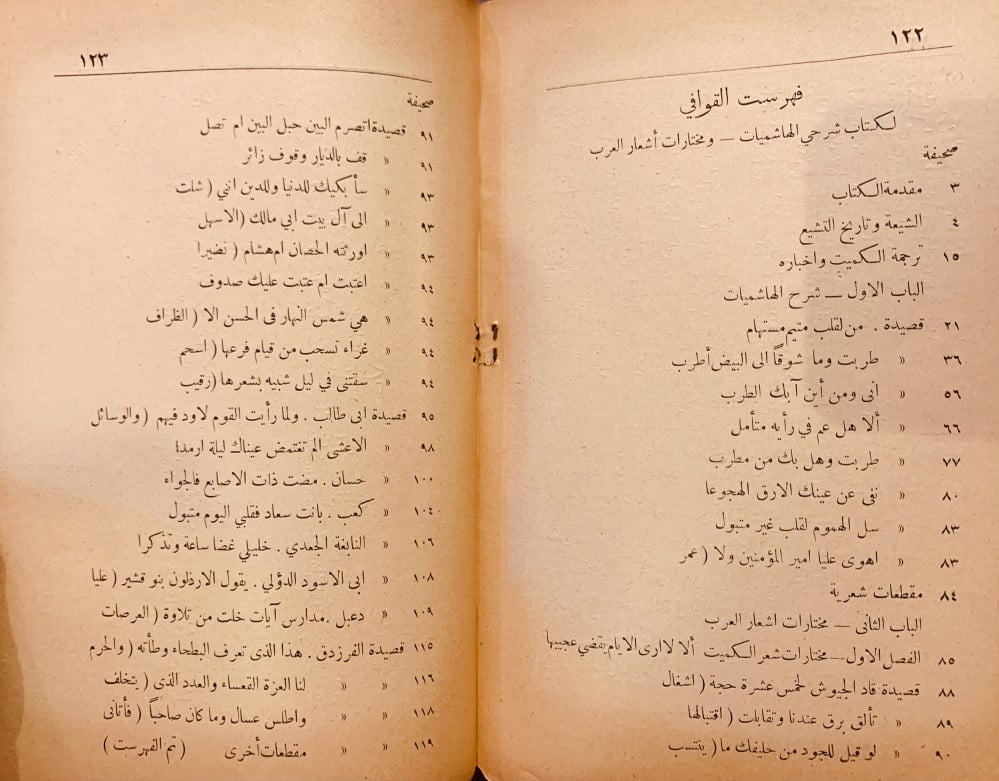 ١٢٢
فهرست القوافي
لكتاب شرحي الهاشميات — ومختارات أشعار العرب
صحيفة
٣ مقدمة الكتاب
٤ الشيعة وتاريخ التشيع
١٥ ترجمة الكميت واخباره
الباب الاول — شرح الهاشميات
٢١ قصيدة . من لقلب متيم مستهام
٣٦ » طربت وما شوقاً الى البيض أطرب
٥٦ » انى ومن أين آبك الطرب
٦٦ » ألا هل عم في رأيه متأمل
٧٧ » طربت وهل بك من مطرب
٨٠ » نفى عن عينك الارق الهجوعا
٨٣ » سل الهموم لقلب غير متبول
٨٣ » اهوى عليا امير المؤمنين ولا ( عمر
٨٤ مقطعات شعرية
الباب الثانى — مختارات اشعار العرب
٨٥ الفصل الاول — مختارات شعر الكميت ألا لا ارى الايام يقضي عجيبها
٨٨ قصيدة قاد الجيوش لخمس عشرة حجة ( اشغال
٨٩ » تألق برق عندنا وتقابلت ( اقتبالها
٩٠ » لو قيل للجود من حليفك ما ( ينتسب
١٢٣
صحيفة
٩١ قصيدة اتصرم البين حبل البين ام تصل
٩١ » قف بالديار وقوف زائر
٩٣ » سأبكيك للدنيا وللدين انني ( شلت
٩٣ » الى آل بيت ابي مالك ( الاسهل
٩٣ » اورثته الحصان ام هشام ( نضيرا
٩٤ » اعتبت ام عتبت عليك صدوف
٩٤ » هي شمس النهار فى الحسن الا ( الظراف
٩٤ » غراء تسحب من قيام فرعها ( اسحم
٩٤ » سقتنى في ليل شبيه بشعرها ( رقيب
٩٥ قصيدة ابى طالب . ولما رأيت القوم لاود فيهم ( والوسائل
٩٨ » الاعشى الم تغتمض عيناك ليلة ارمدا
١٠٠ » حسان . مضت ذات الاصابع فالجواء
١٠٤ » كعب . بانت سعاد فقلبي اليوم متبول
١٠٦ » النابغة الجعدي . خليلي غضا ساعة وتذكرا
١٠٨ » ابى الاسود الدؤلي . يقول الارذلون بنو قشير ( عليا
١٠٩ » دعبل . مدارس آيات خلت من تلاوة ( العرصات
١١٥ قصيدة الفرزدق . هذا الذى تعرف البطحاء وطأته ( والحرم
١١٦ » » لنا العزة القعساء والعدد الذى ( يتخلف
١١٨ » » واطلس عسال وما كان صاحباً ( فأتانى
١١٩ » » مقطعات أخرى ( تم الفهرست )